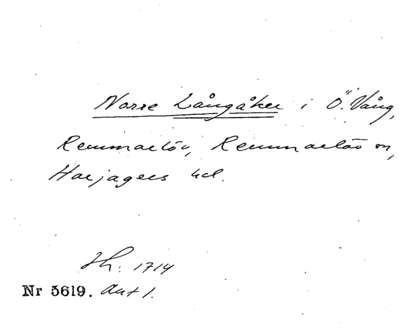 Norre Långåker i Ö. Vång,
Remmarlöv, Remmarlöv sn,
Harjagers hd.
Jh. 1714
Nr 5619. Akt 1.